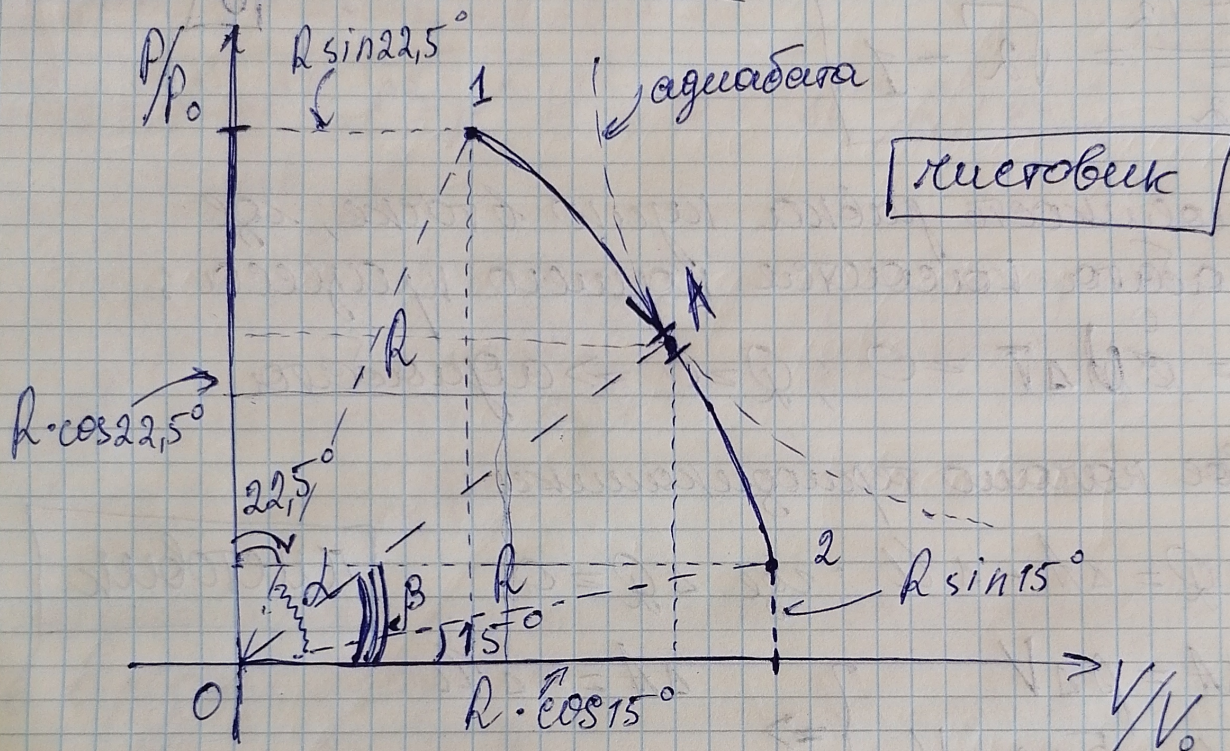 P/P₀
R sin22,5°
1
адиабата
чистовик
A
R
R·cos22,5°
22,5°
2
α
β
R
15°
R sin15°
O
R·cos15°
V/V₀